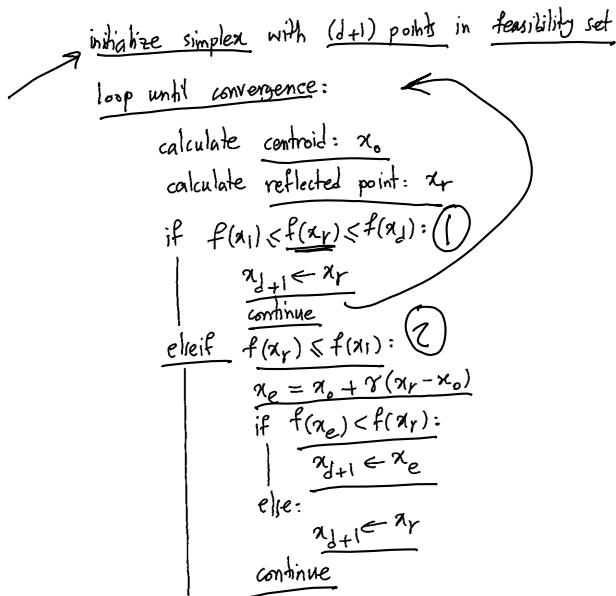 initialize simplex with (d+1) points in feasibility set
loop until convergence:
calculate centroid: x₀
calculate reflected point: xᵣ
if f(x₁) ⩽ f(xᵣ) ⩽ f(x_d): ①
x_{d+1} ← xᵣ
continue
elseif f(xᵣ) ⩽ f(x₁): ②
xₑ = x₀ + γ(xᵣ - x₀)
if f(xₑ) < f(xᵣ):
x_{d+1} ← xₑ
else:
x_{d+1} ← xᵣ
continue